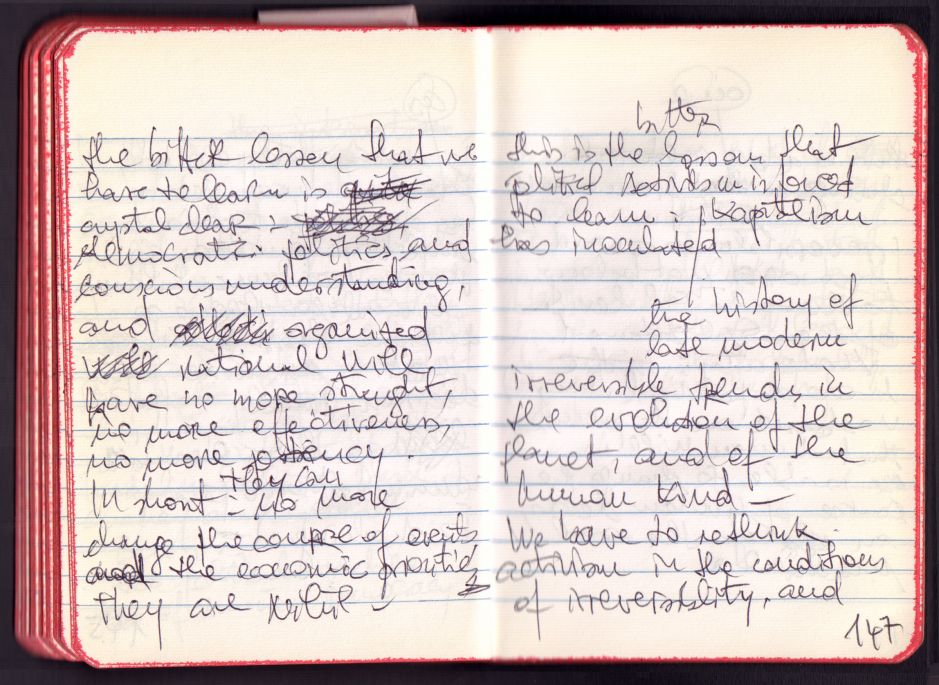 the bitter lesson that we
have to learn is
crystal clear :
democratic politics, and
conscious understanding,
and organized
rational will
have no more strenght,
no more effectiveness,
no more potency.
They can
In short : no more
change the course of events
the economic priorities
They are
bitter
this is the lesson that
political activism is forced
to learn : Kapitalism
has inoculated
the history of
late modern
irreversible trends, in
the evolution of the
planet, and of the
human kind –
We have to rethink
activism in the conditions
of irreversibility, and
147